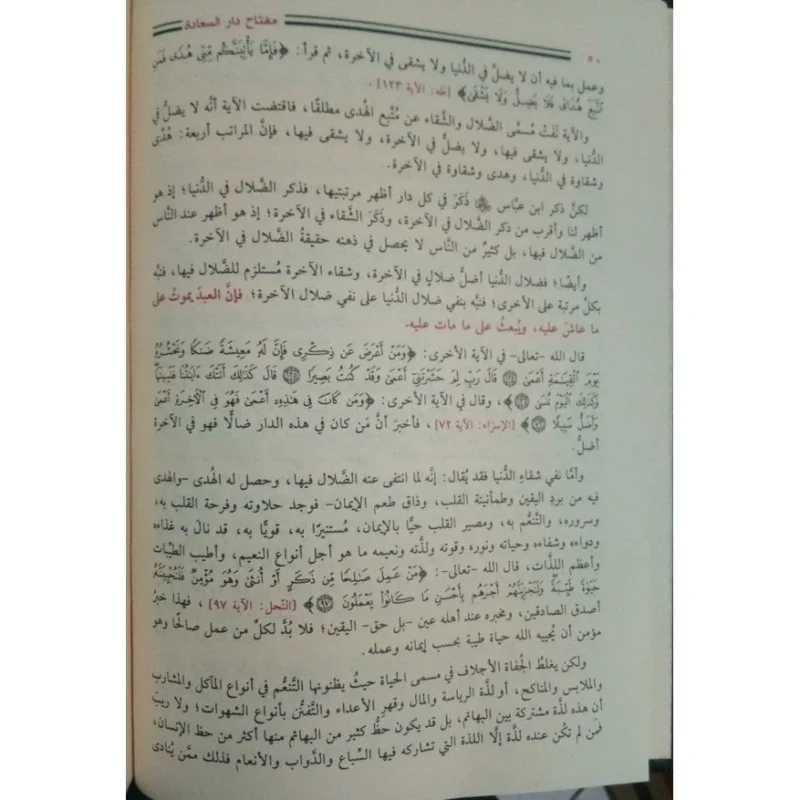 مفتاح دار السعادة
٥٠
وعمل بما فيه أن لا يضلَّ في الدُّنيا ولا يشقى في الآخرة، ثم قرأ: ﴿فَإِمَّا يَأْتِيَنَّكُم مِّنِّي هُدًى فَمَنِ
اتَّبَعَ هُدَايَ فَلَا يَضِلُّ وَلَا يَشْقَىٰ﴾ [طه: الآية ١٢٣].
والآية نَفَتْ مُسمَّى الضَّلال والشَّقاء عن مُتَّبع الهُدى مطلقًا، فاقتضت الآية أنَّه لا يضلُّ في
الدُّنيا، ولا يشقى فيها، ولا يضلُّ في الآخرة، ولا يشقى فيها، فإنَّ المراتب أربعة: هُدًى
وشقاوة في الدُّنيا، وهدى وشقاوة في الآخرة.
لكنْ ذكر ابن عبَّاس ﵁ ذَكَرَ في كل دار أظهر مرتبتيها، فذكر الضَّلال في الدُّنيا؛ إذ هو
أظهر لنا وأقرب من ذكر الضَّلال في الآخرة، وذَكَرَ الشَّقاء في الآخرة؛ إذ هو أظهر عند النَّاس
من الضَّلال فيها، بل كثيرٌ من النَّاس لا يحصل في ذهنه حقيقةُ الضَّلال في الآخرة.
وأيضًا؛ فضلال الدُّنيا أضلُّ ضلالٍ في الآخرة، وشقاء الآخرة مُستلزم للضَّلال فيها، فنبَّه
بكلِّ مرتبة على الأخرى؛ فنبَّه بنفي ضلال الدُّنيا على نفي ضلال الآخرة؛ فإنَّ العبدَ يموتُ على
ما عاشَ عليه، ويُبعثُ على ما مات عليه.
قال الله -تعالى- في الآية الأخرى: ﴿وَمَنْ أَعْرَضَ عَن ذِكْرِي فَإِنَّ لَهُ مَعِيشَةً ضَنكًا وَنَحْشُرُهُ
يَوْمَ الْقِيَامَةِ أَعْمَىٰ ۝١٢٤ قَالَ رَبِّ لِمَ حَشَرْتَنِي أَعْمَىٰ وَقَدْ كُنتُ بَصِيرًا ۝١٢٥ قَالَ كَذَٰلِكَ أَتَتْكَ آيَاتُنَا فَنَسِيتَهَا
وَكَذَٰلِكَ الْيَوْمَ تُنسَىٰ ۝١٢٦﴾، وقال في الآية الأخرى: ﴿وَمَن كَانَ فِي هَٰذِهِ أَعْمَىٰ فَهُوَ فِي الْآخِرَةِ أَعْمَىٰ
وَأَضَلُّ سَبِيلًا ۝٧٢﴾ [الإسرَاء: الآية ٧٢]، فأخبرَ أنَّ مَن كان في هذه الدار ضالًّا فهو في الآخرة
أضلُّ.
وأمَّا نفي شقاءِ الدُّنيا فقد يُقال: إنَّه لما انتفى عنه الضَّلال فيها، وحصل له الهُدى -والهدى
فيه من بردِ اليقين وطمأنينة القلب، وذاق طعم الإيمان- فوجد حلاوته وفرحة القلب به،
وسروره، والتَّنعُّم به، ومصير القلب حيًّا بالإيمان، مُستنيرًا به، قويًّا به، قد نال به غذاءه
ودواءه وشفاءه وحياته ونوره وقوته ولذَّته ونعيمه ما هو أجل أنواع النعيم، وأطيب الطيِّبات
وأعظم اللذَّات، قال الله -تعالى-: ﴿مَنْ عَمِلَ صَالِحًا مِّن ذَكَرٍ أَوْ أُنثَىٰ وَهُوَ مُؤْمِنٌ فَلَنُحْيِيَنَّهُ
حَيَاةً طَيِّبَةً وَلَنَجْزِيَنَّهُمْ أَجْرَهُم بِأَحْسَنِ مَا كَانُوا يَعْمَلُونَ ۝٩٧﴾ [النَّحل: الآية ٩٧]، فهذا خبرُ
أصدق الصادقين، ومخبره عند أهله عين -بل حق- اليقين؛ فلا بُدَّ لكلِّ من عمل صالحًا وهو
مؤمن أن يُحييه الله حياة طيبة بحسب إيمانه وعمله.
ولكن يغلطُ الجُفاة الأجلاف في مسمى الحياة حيثُ يظنونها التَّنعُّم في أنواع المآكل والمشارب
والملابس والمناكح، أو لذَّة الرياسة والمال وقهرِ الأعداء والتَّفنُّن بأنواع الشهوات؛ ولا ريبَ
أن هذه لذَّة مشتركة بين البهائم، بل قد يكون حظُّ كثير من البهائم منها أكثر من حظ الإنسان،
فمَن لم تكُن عنده لذَّة إلَّا اللذة التي تشاركه فيها السِّباع والدَّواب والأنعام فذلك ممَّن يُنادى